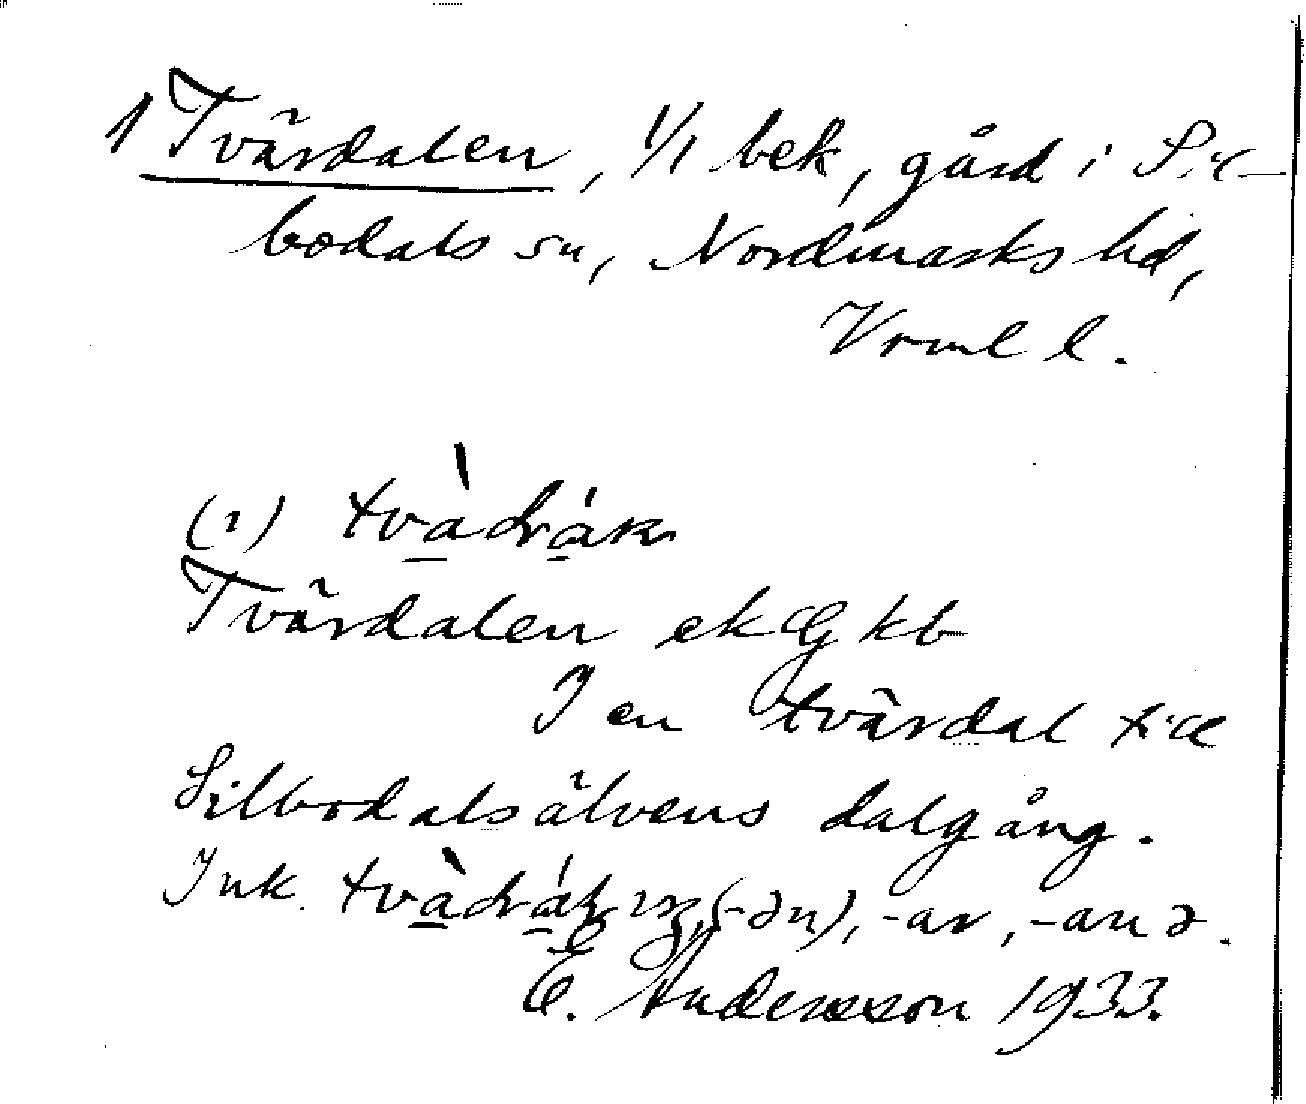 1 Tvärdalen, 1/1 bek, gård i Sil-
bodals sn, Nordmarks hd,
Vrml l.
(1)
Tvärdalen ek Gg kb
I en tvärdal till
Silbodalsälvens dalgång.
Ink. (-ən), -ar, -anə.
E. Andersson 1933.